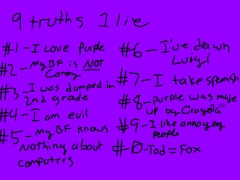 9 truths 1 lie
#1 - I Love Purple
#2 - My BF is NOT
Coney
#3 I was dumped in
2nd grade
#4 - I am evil
#5 - my BF knows
Nothing about
computers
#6 - I've drawn
Luigi
#7 - I take spanish
#8 - purple was made
up by Crayola
#9 - I like annoying
people
#10-Tod = Fox